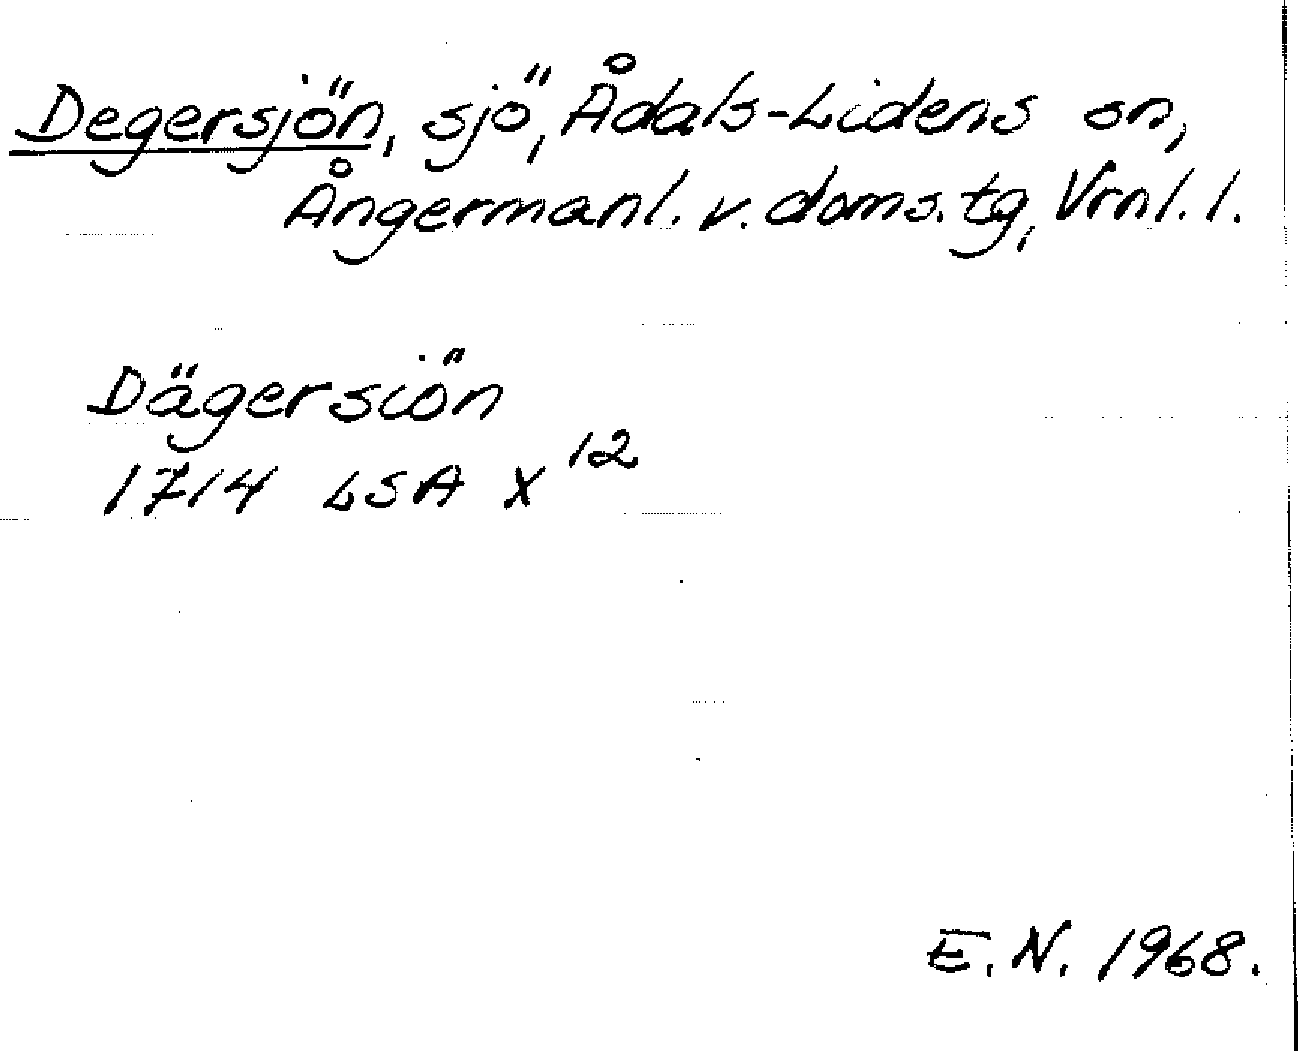 Degersjön, sjö, Ådals-Lidens sn,
Ångermanl. v. doms. tg, Vrnl. l.
Dägersiön
1714 LSA X 12
E. N. 1968.